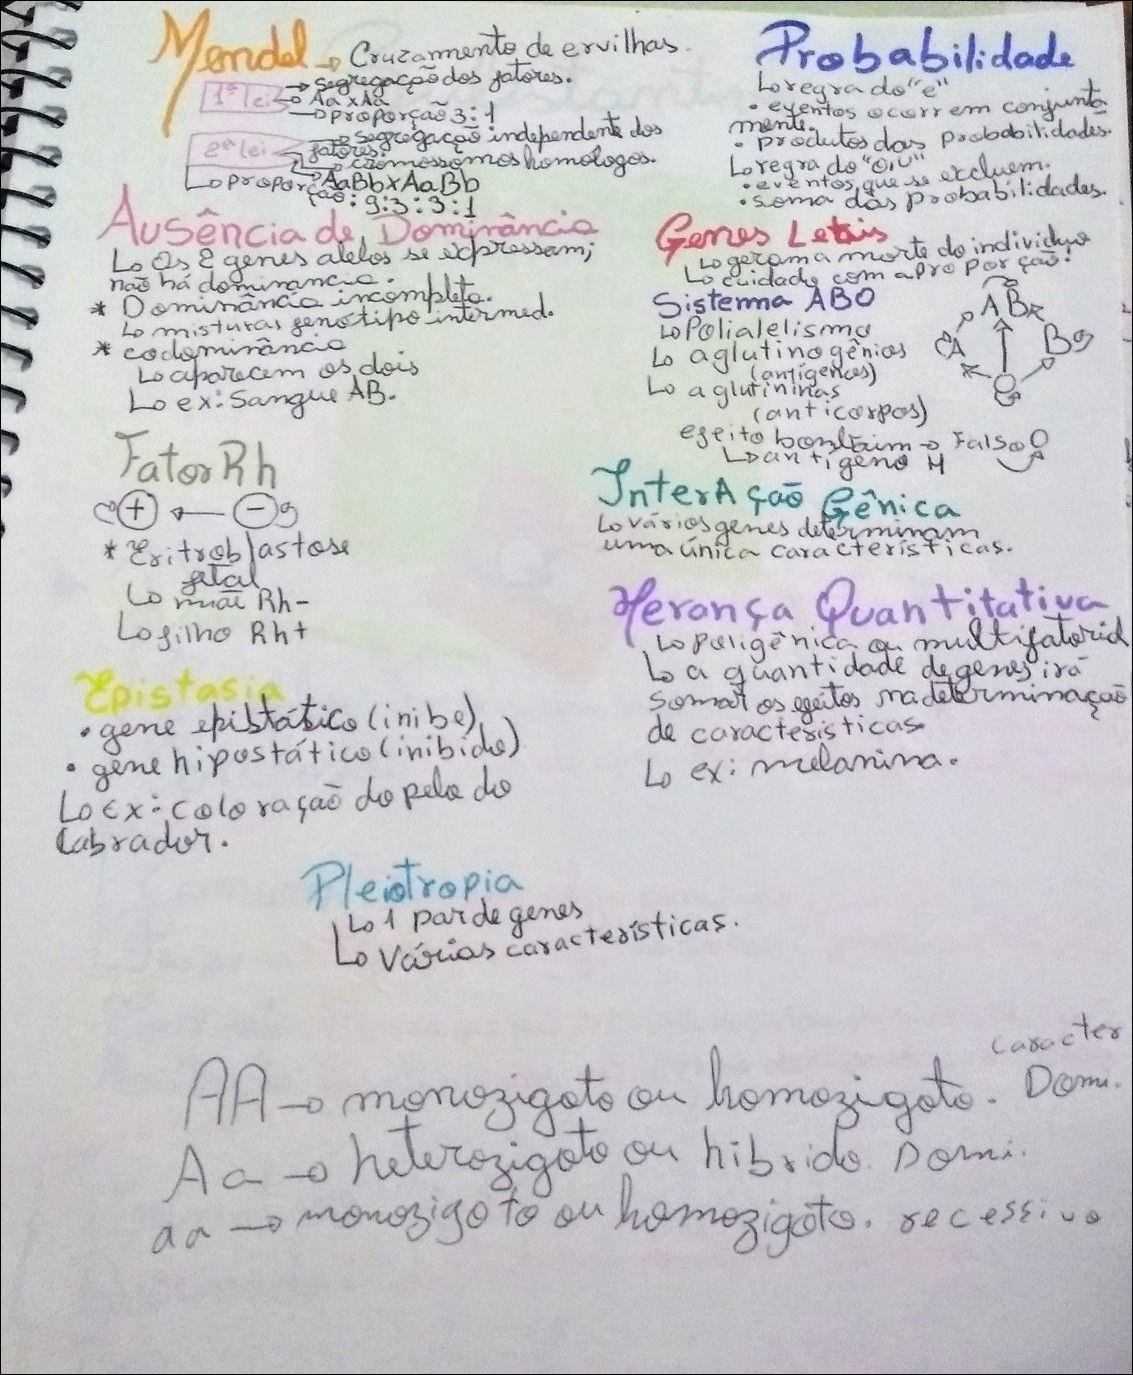 Mendel → Cruzamento de ervilhas.
1ª lei → segregação dos fatores.
→ Aa x Aa
→ proporção 3:1
2ª lei → segregação independente dos
fatores.
→ cromossomos homologos.
→ AaBb x AaBb
↳ proporção: 9:3:3:1
Ausência de Dominância
↳ Os 2 genes alelos se expressam;
não há dominancia.
* Dominância incompleta.
↳ misturas genótipo intermed.
* codominância
↳ aparecem os dois
↳ ex: Sangue AB.
Fator Rh
+ ← −
* Eritroblastose
fetal
↳ mãe Rh-
↳ filho Rh+
Epistasia
• gene epistático (inibe)
• gene hipostático (inibido)
↳ Ex: coloração do pelo do
Labrador.
Probabilidade
↳ regra do "e"
• eventos ocorrem conjunta
mente.
• produtos das probabilidades.
↳ regra do "ou"
• eventos que se excluem.
• soma das probabilidades.
Genes Letais
↳ geram a morte do individuo
↳ cuidado com a proporção!
Sistema ABO
↳ Polialelismo
↳ aglutinogênios
(antígenos)
↳ aglutininas
(anticorpos)
AB
A B
O
efeito bombaim → Falso O
↳ antígeno H
InterAção Gênica
↳ vários genes determinam
uma única características.
Herança Quantitativa
↳ Poligênica ou multifatorial
↳ a quantidade de genes irá
somar os efeitos na determinação
de características.
↳ ex: melanina.
Pleiotropia
↳ 1 par de genes
↳ Várias características.
AA → monozigoto ou homozigoto. caracter Domi.
Aa → heterozigoto ou hibrido. Domi.
aa → monozigoto ou homozigoto. recessivo